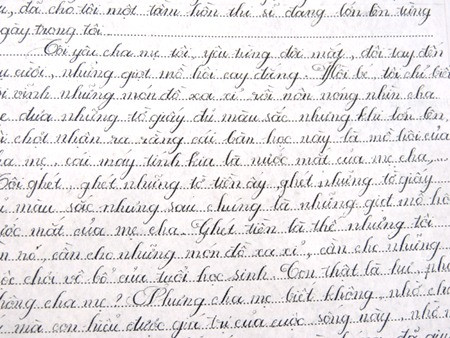 , đã cho tôi một tâm hồn thi sĩ đang lớn lên từng
gày trong tôi
Tôi yêu cha mẹ tôi, yêu từng đôi mắt, đôi tay đến
cười, những giọt mồ hôi cay đắng. Hồi bé, tôi chỉ biết
vĩnh những món đồ xa xỉ rồi nôn nóng nhìn cha
đưa những tờ giấy đủ màu sắc nhưng khi lớn lên,
chợt nhận ra rằng cái bàn học này là mồ hôi của
mẹ, cái máy tính kia là nước mắt của mẹ cha,...
Tôi ghét, ghét những tờ tiền ấy, ghét những tờ giấy
màu sắc nhưng sau chúng là những giọt mồ hô
ước mắt của mẹ cha. Ghét tiền là thế nhưng tôi
nó, cần cho những món đồ xa xỉ, cần cho những
chơi vô bổ của tuổi học sinh. Con thật là hư, ph
hông cha mẹ? Nhưng cha mẹ biết không, nhờ ch
mà con hiểu được giá trị của cuộc sống này, nhờ